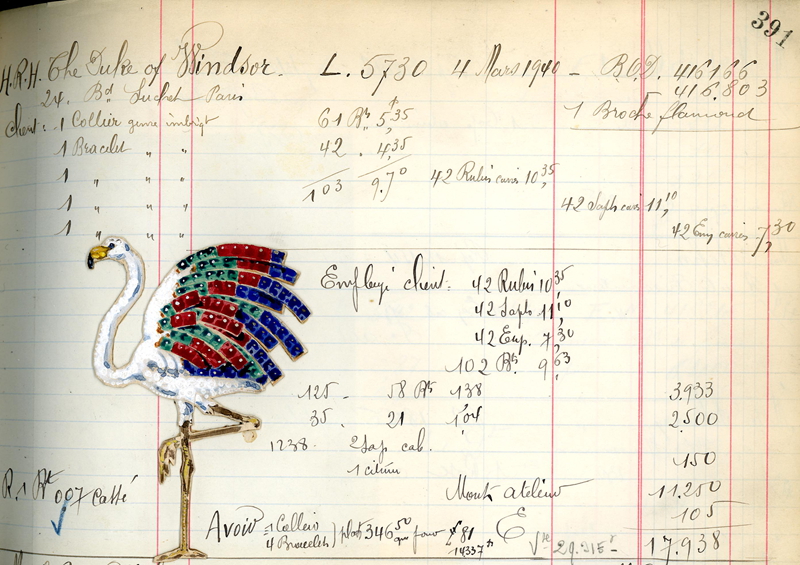 391
H.R.H. The Duke of Windsor. L. 5730 4 Mars 1940 - B.O.D. 416166
24. Bd Suchet Paris - 416.803
Client: 1 Collier genre imbriqt 61 Bts 5,35 1 Broche flamand
1 Bracelet " " 42 . 4,35
1 " " " 103 9.70 42 Rubis carrés 10,35
1 " " " 42 Saphs carrés 11,10
1 " " " 42 Em carrées 7,30
Employé client: 42 Rubis 10,35
42 Saphs 11,10
42 Em. 7,30
102 Bts 9,63
125 - 58 Bts 138 3.933
35. 21 1,04 2.500
1238. 2 Sap cab.
1 citrin 150
R. 1 Bt 007 cassé Monte atelier 11.250
105
Avoir 1 Collier
4 Bracelets ) plat 346,50 81
14337 Vte 29.215 - 17.938